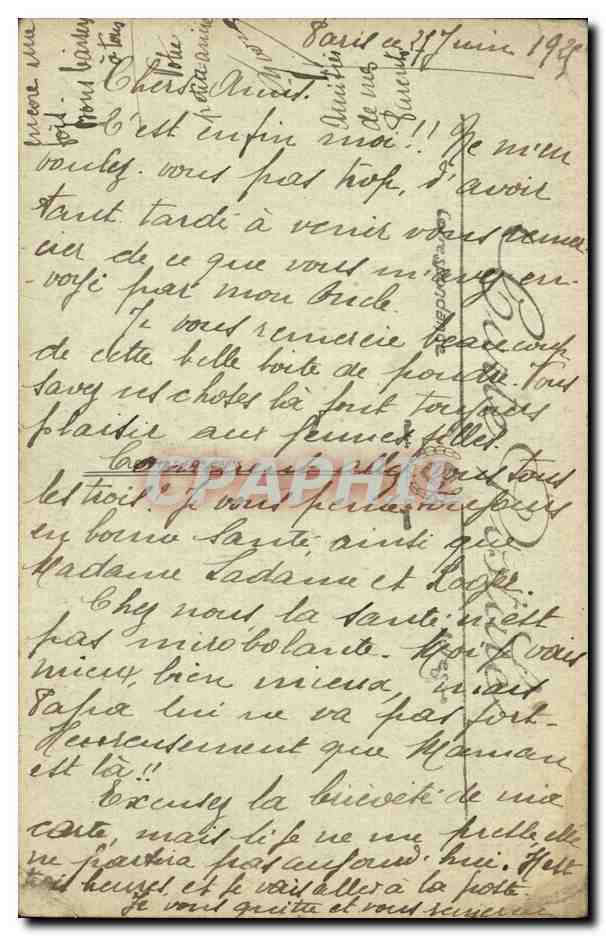 Paris ce 27 Juin 1925
Chers Amis.
C'est enfin moi!! Ne m'en
voulez-vous pas trop, d'avoir
tant tardé à venir vous remer-
cier de ce que vous m'avez en-
-voyé par mon Oncle.
Je vous remercie beaucoup
de cette belle boite de poudre. Vous
savez ces choses là font toujours
plaisir aux jeunes filles.
Comment allez vous tous
les trois. Je vous pense toujours
en bonne santé, ainsi que
Madame Ladame et Roger.
Chez nous, la santé n'est
pas mirobolante. Moi je vais
mieux, bien mieux, mais
Papa lui ne va pas fort-
Heureusement que Maman
est là!!
Excusez la brièveté de ma
carte, mais si je ne me presse elle
ne partira pas aujourd'hui. Il est
trois heures et je vais aller à la poste.
Je vous quitte et vous remercie
encore une
fois.
vous baisers
à tous
Votre
petite amie
Amitiés
de mes
Parents
Carte Postale
Correspondance
CPAPHIL